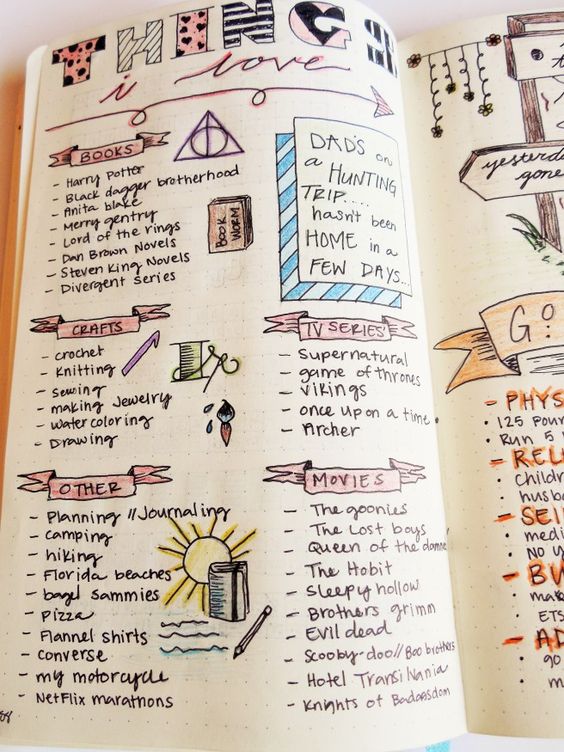 THINGS
i love
BOOKS
- Harry Potter
- Black dagger brotherhood
- Anita blake
- Merry gentry
- Lord of the rings
- Dan Brown Novels
- Steven King Novels
- Divergent series
BOOK WORM
DAD'S on
a HUNTING
TRIP....
hasn't been
HOME in a
FEW DAYS...
CRAFTS
- crochet
- knitting
- sewing
- making Jewelry
- watercoloring
- Drawing
TV SERIES'
- Supernatural
- game of thrones
- Vikings
- once upon a time
- Archer
OTHER
- Planning // Journaling
- camping
- hiking
- Florida beaches
- bagel sammies
- pizza
- Flannel shirts
- converse
- my motorcycle
- NetFlix marathons
MOVIES
- The goonies
- The Lost boys
- Queen of the damne
- The Hobit
- Sleepy hollow
- Brothers grimm
- Evil dead
- Scooby-doo // Boo brothers
- Hotel Transilvania
- Knights of Badassdom
yesterda
gone
GO
- PHYS
• 125 Poun
• Run 5
- REL
• Childr
• husb
- SEI
• medi
• No
- BU
• mak
ETS
- AD
• 90